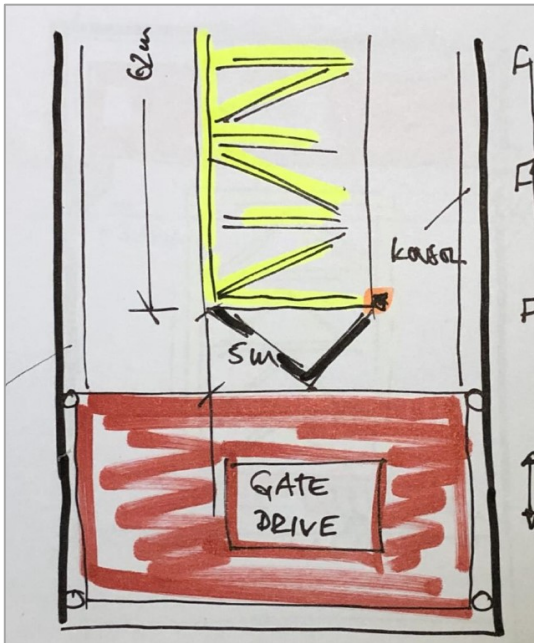 62m
KONSOL
5m
GATE
DRIVE